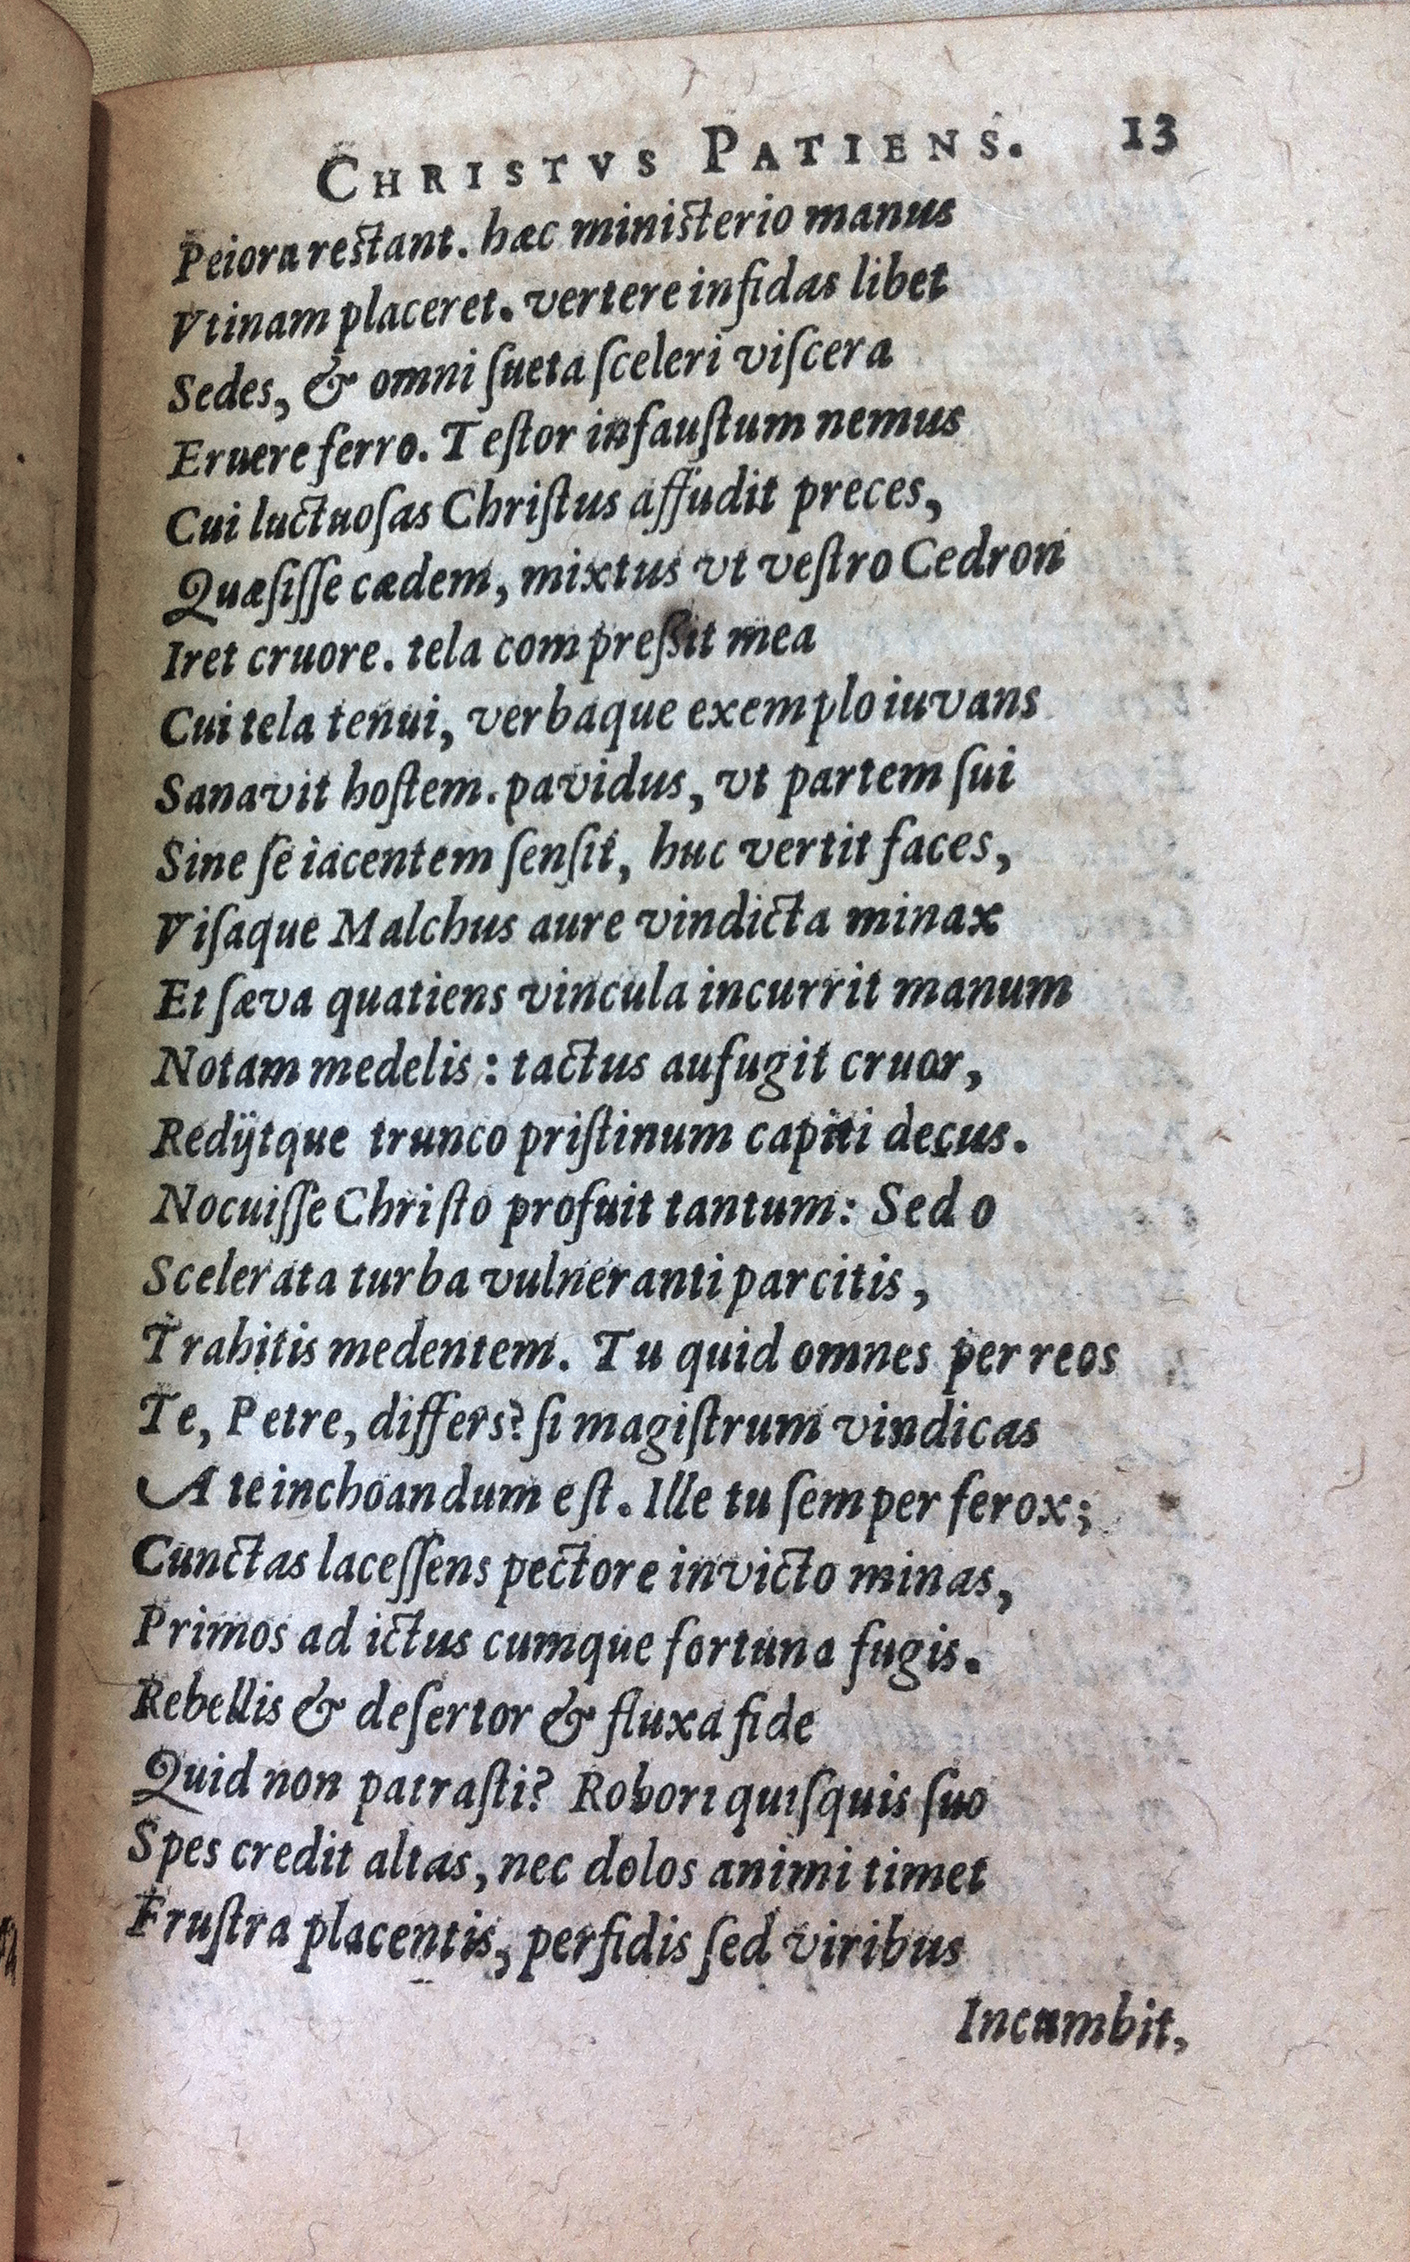 CHRISTVS PATIENS. 13
Peiora restant. hæc ministerio manus
Vtinam placeret. vertere infidas libet
Sedes, & omni ſueta ſceleri viſcera
Eruere ferro. Teſtor infauſtum nemus
Cui luctuoſas Chriſtus affudit preces,
Quæſiſſe cædem, mixtus vt veſtro Cedron
Iret cruore. tela compreßit mea
Cui tela tenui, verbaque exemplo iuvans
Sanavit hoſtem. pavidus, vt partem ſui
Sine ſe iacentem ſenſit, huc vertit faces,
Viſaque Malchus aure vindicta minax
Et ſæva quatiens vincula incurrit manum
Notam medelis: tactus aufugit cruor,
Redijtque trunco priſtinum capiti decus.
Nocuiſſe Chriſto profuit tantum: Sed o
Scelerata turba vulneranti parcitis,
Trahitis medentem. Tu quid omnes per reos
Te, Petre, differs? ſi magiſtrum vindicas
A te inchoandum eſt. Ille tu ſemper ferox;
Cunctas laceſſens pectore invicto minas,
Primos ad ictus cumque fortuna fugis.
Rebellis & deſertor & fluxa fide
Quid non patraſti? Robori quiſquis ſuo
Spes credit altas, nec dolos animi timet
Fruſtra placentis, perfidis ſed viribus
Incumbit,